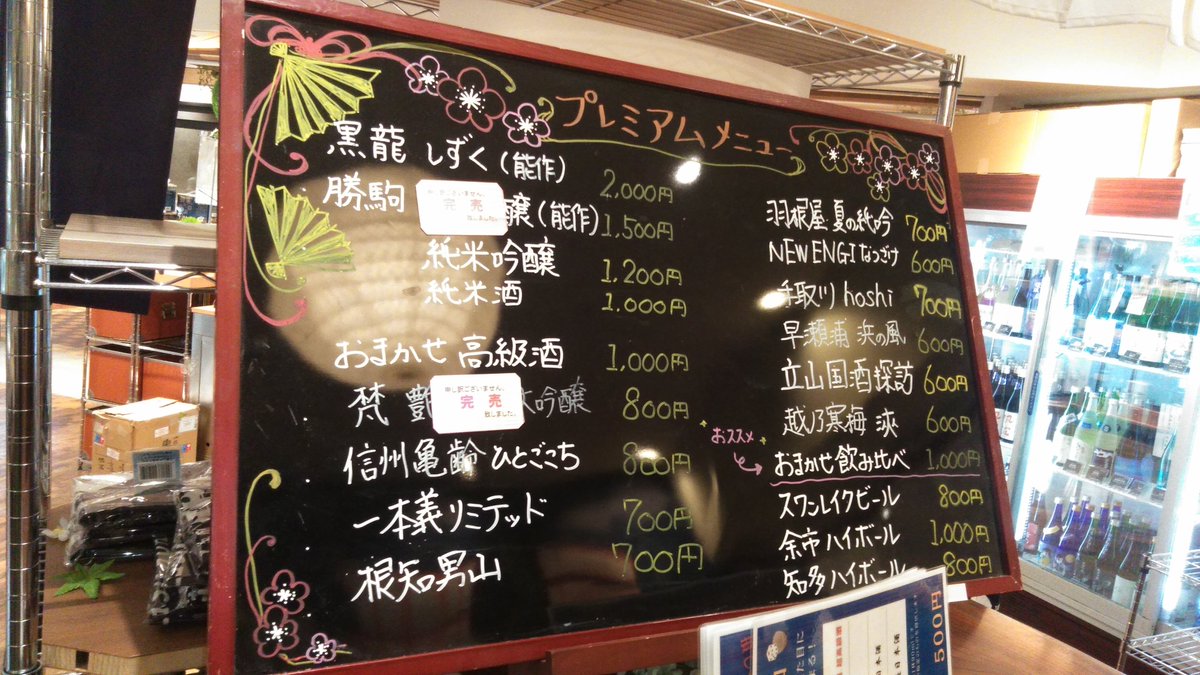 プレミアムメニュー
黒龍 しずく(能作) 2,000円
勝駒 醸(能作) 1,500円
申し訳ございません。
完売
致しました。
純米吟醸 1,200円
純米酒 1,000円
おまかせ 高級酒 1,000円
梵 艶 大吟醸 800円
申し訳ございません。
完売
致しました。
信州亀齢 ひとごこち 800円
一本義リミテッド 700円
根知男山 700円
羽根屋 夏の純吟 700円
NEW ENGI なつざけ 600円
手取川 hoshi 700円
早瀬浦 浜の風 600円
立山国酒探訪 600円
越乃寒梅 浹 600円
おススメ
おまかせ飲み比べ 1,000円
スワンレイクビール 800円
余市ハイボール 1,000円
知多ハイボール 800円
500円